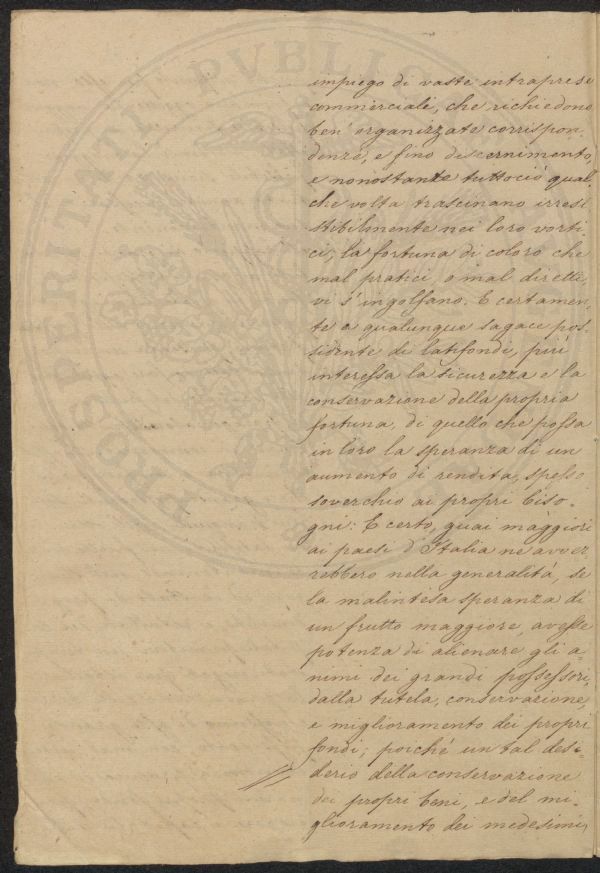 impiego di vaste intraprese
commerciali, che richiedono
ben' organizzate corrispon-
denze, e fino discernimento,
e nonostante tuttociò qual
che volta trascinano irresi
stibilmente nei loro vorti-
ci, la fortuna di coloro che
mal pratici, o mal diretti,
vi s'ingolfano. E certamen-
te a qualunque sagace pos-
sidente di latifondi, più
interessa la sicurezza e la
conservazione della propria
fortuna, di quello che possa
in loro la speranza di un
aumento di rendita, spesso
soverchio ai propri biso-
gni: E certo, quai maggiori
ai paesi d'Italia ne avver
rebbero nella generalità, se
la malintesa speranza di
un frutto maggiore, avesse
potenza di alienare gli a-
nimi dei grandi possessori,
dalla tutela, conservazione,
e miglioramento dei propri
fondi; poiché un tal desi-
derio della conservazione
dei propri beni, e del mi-
glioramento dei medesimi,
PROSPERITATI PVBLIC